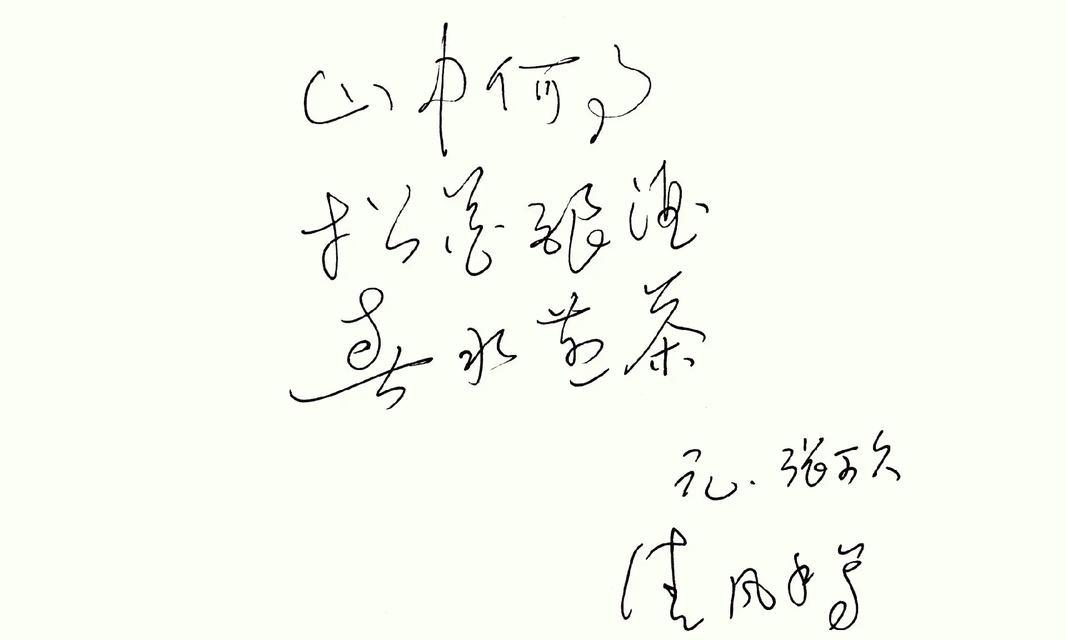 山中何事
松花酿酒
春水煎茶
元·张可久
清风手写